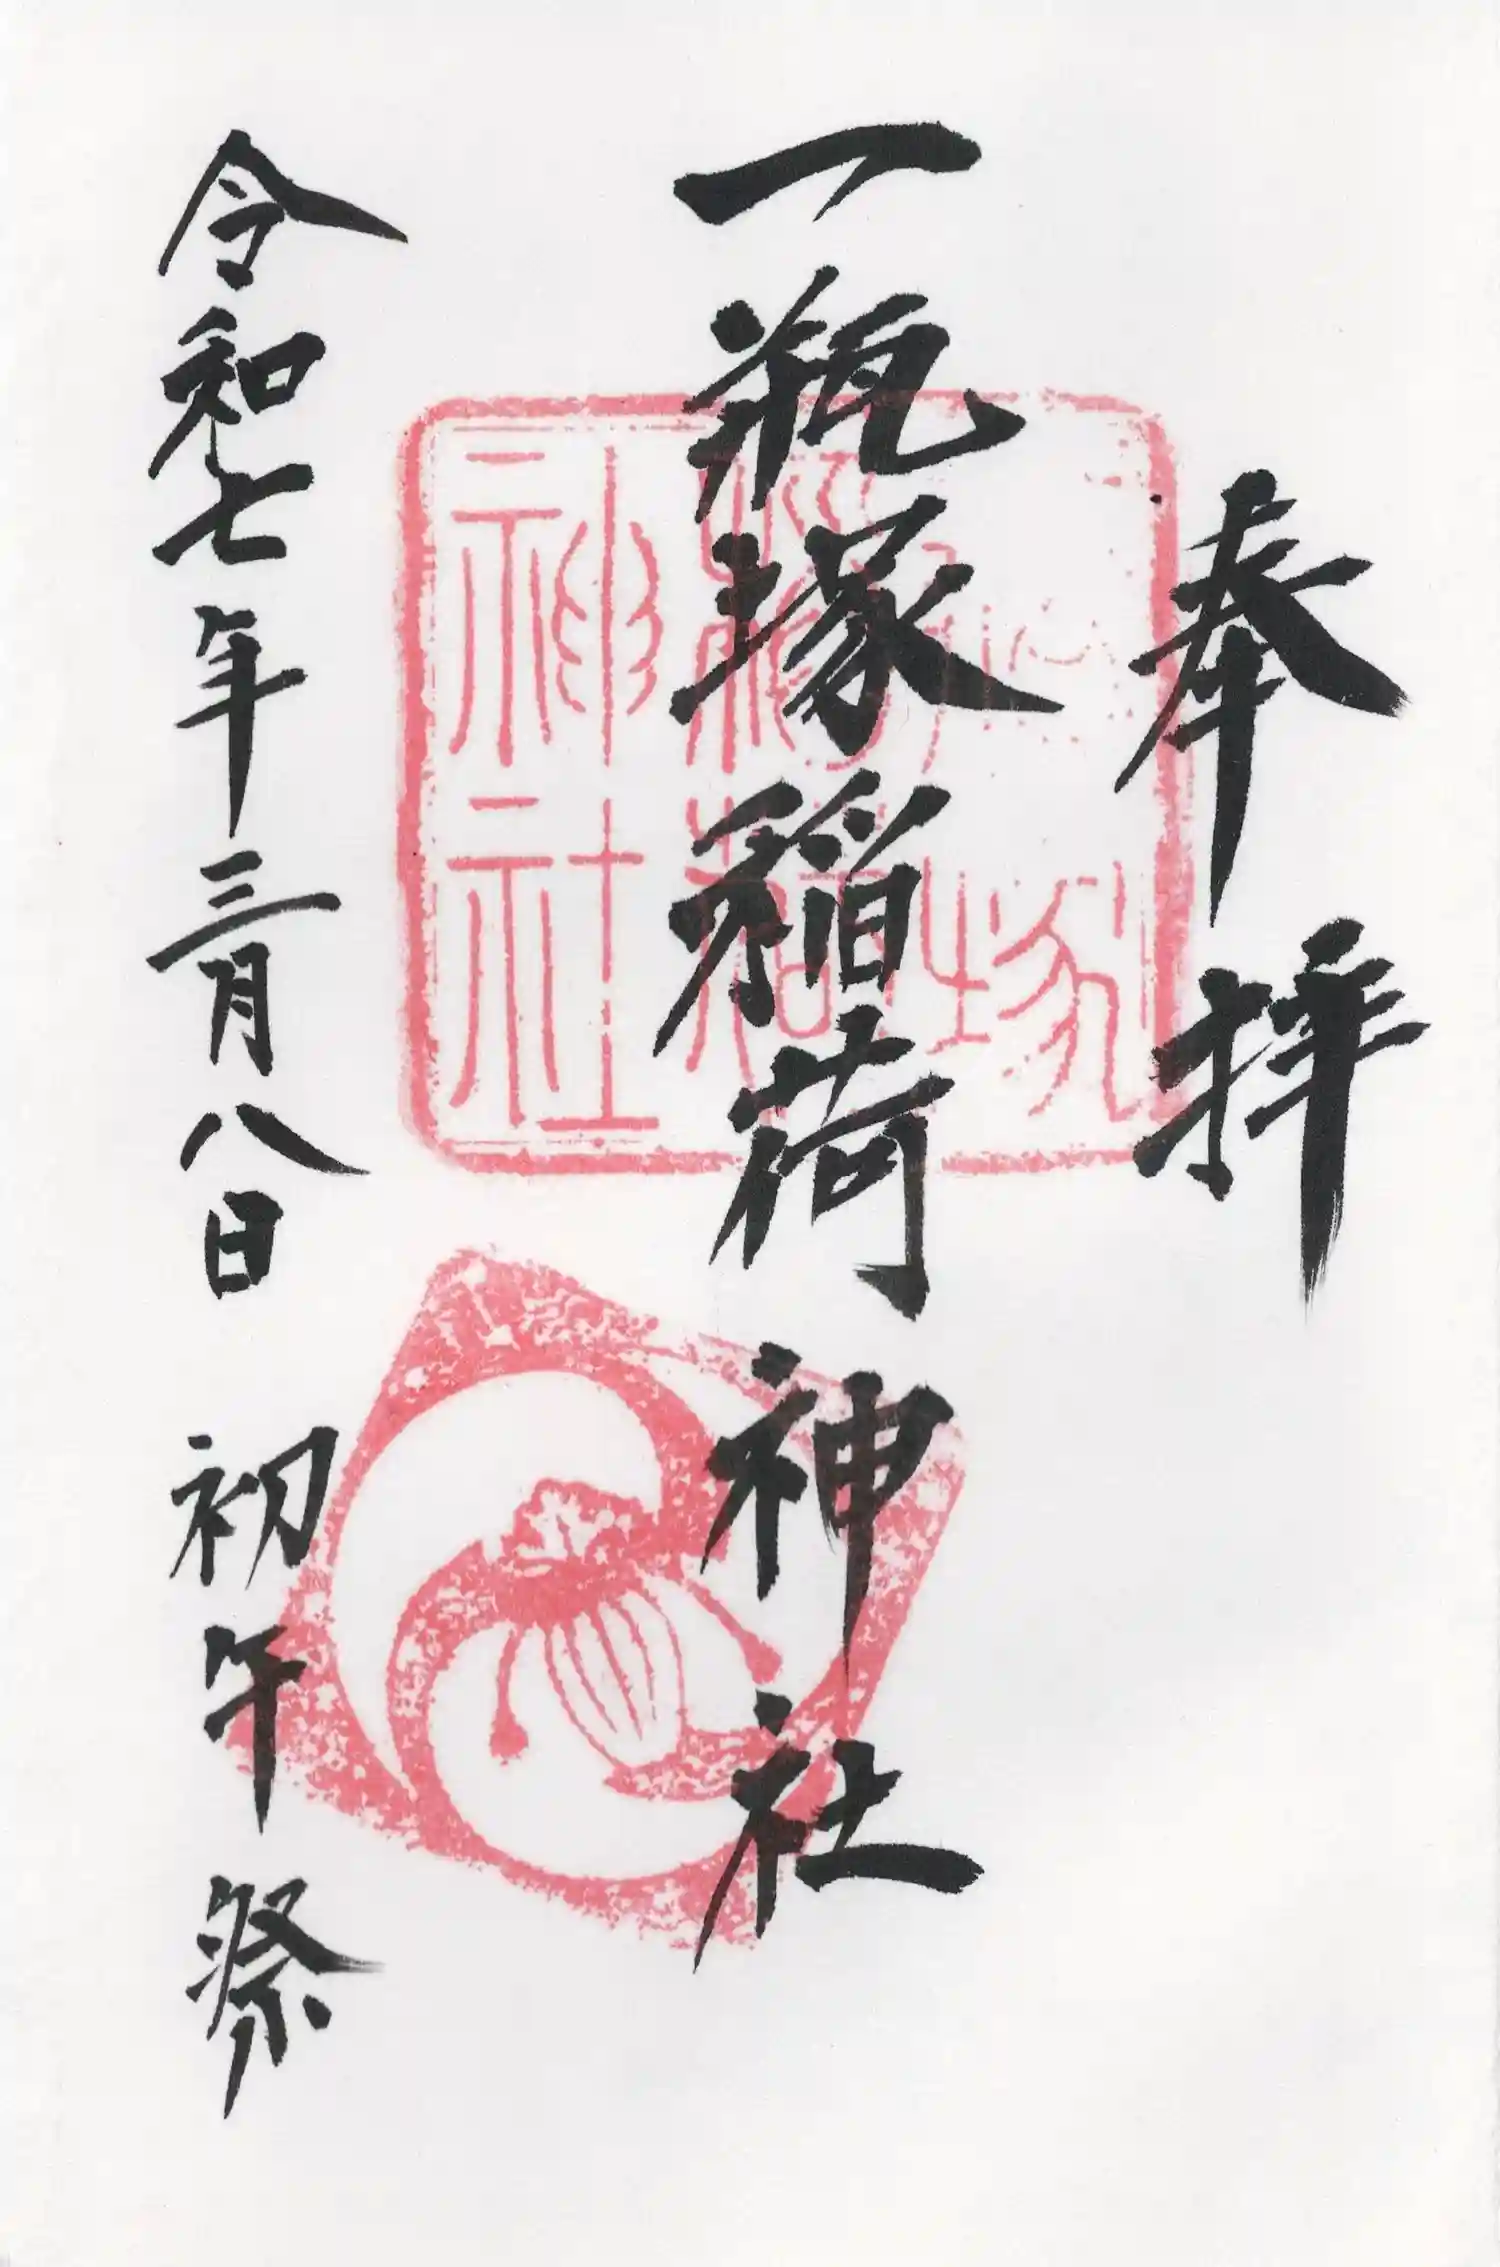 奉拝
一瓶塚稲荷神社
令和七年三月八日 初午祭
神社